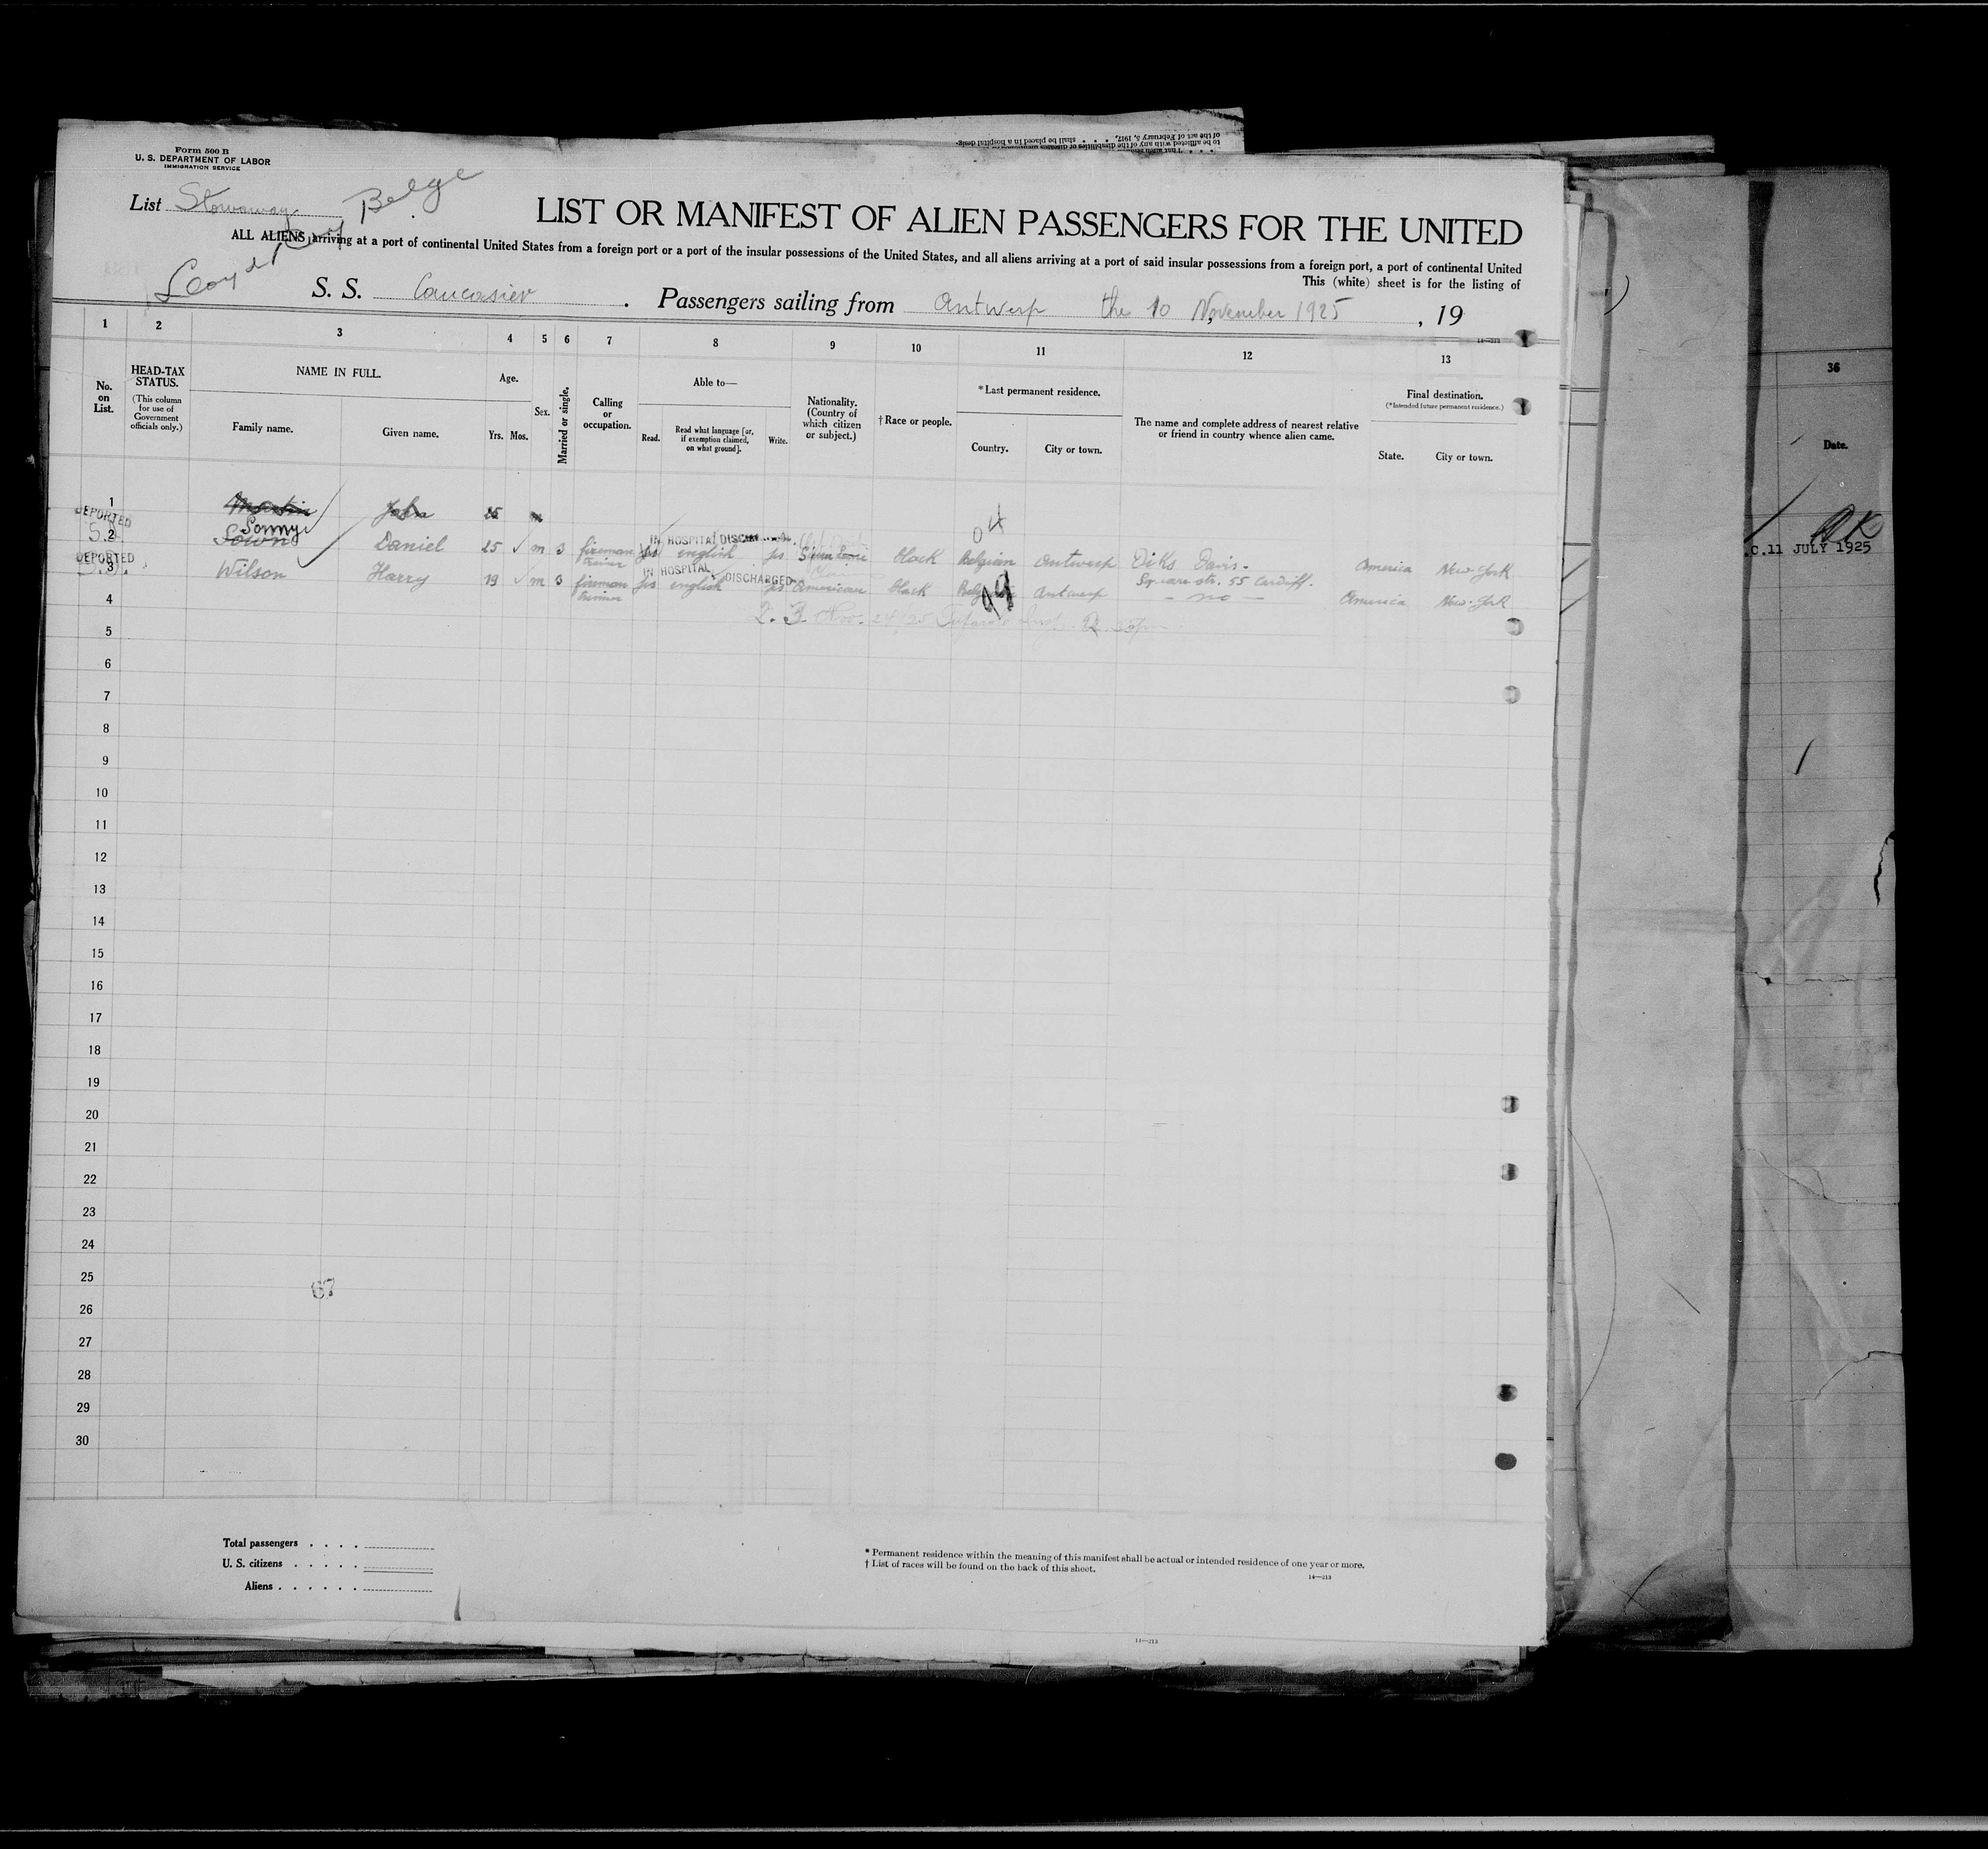 of the act of February 5, 1917, . . . . shall be placed in a hospital desig-
to be afflicted with any of the disabilities or diseases
Form 500 B
U. S. DEPARTMENT OF LABOR
IMMIGRATION SERVICE
List Stowaway Belge
LIST OR MANIFEST OF ALIEN PASSENGERS FOR THE UNITED
ALL ALIENS arriving at a port of continental United States from a foreign port or a port of the insular possessions of the United States, and all aliens arriving at a port of said insular possessions from a foreign port, a port of continental United
This (white) sheet is for the listing of
S. S. Caucasier . Passengers sailing from Antwerp the 10 November 1925 , 19
14—213
1 2 3 4 5 6 7 8 9 10 11 12 13
No. on List.
HEAD-TAX STATUS.
(This column for use of Government officials only.)
NAME IN FULL.
Family name. Given name.
Age.
Yrs. Mos.
Sex.
Married or single.
Calling or occupation.
Able to—
Read. Read what language [or, if exemption claimed, on what ground]. Write.
Nationality. (Country of which citizen or subject.)
† Race or people.
* Last permanent residence.
Country. City or town.
The name and complete address of nearest relative or friend in country whence alien came.
Final destination.
(* Intended future permanent residence.)
State. City or town.
36
Date.
1 Martin John 25 m
DEPORTED
Sonny
IN HOSPITAL
2 Daniel 25 ✓ m s fireman yes english yes black Belgian Antwerp Diks Davis. America New York
trimmer
Square str. 55 Cardiff.
DEPORTED
IN HOSPITAL DISCHARGED
3 Wilson Harry 19 ✓ m s fireman yes english yes American black Antwerp — no — America New-York
trimmer
4
Nov. 24
5
6
7
8
9
10
11
12
13
14
15
16
17
18
19
20
21
22
23
24
25
67
26
27
28
29
30
OK
11 JULY 1925
Total passengers . . . .
U. S. citizens . . . . .
Aliens . . . . . .
* Permanent residence within the meaning of this manifest shall be actual or intended residence of one year or more.
† List of races will be found on the back of this sheet.
14—213
11—213